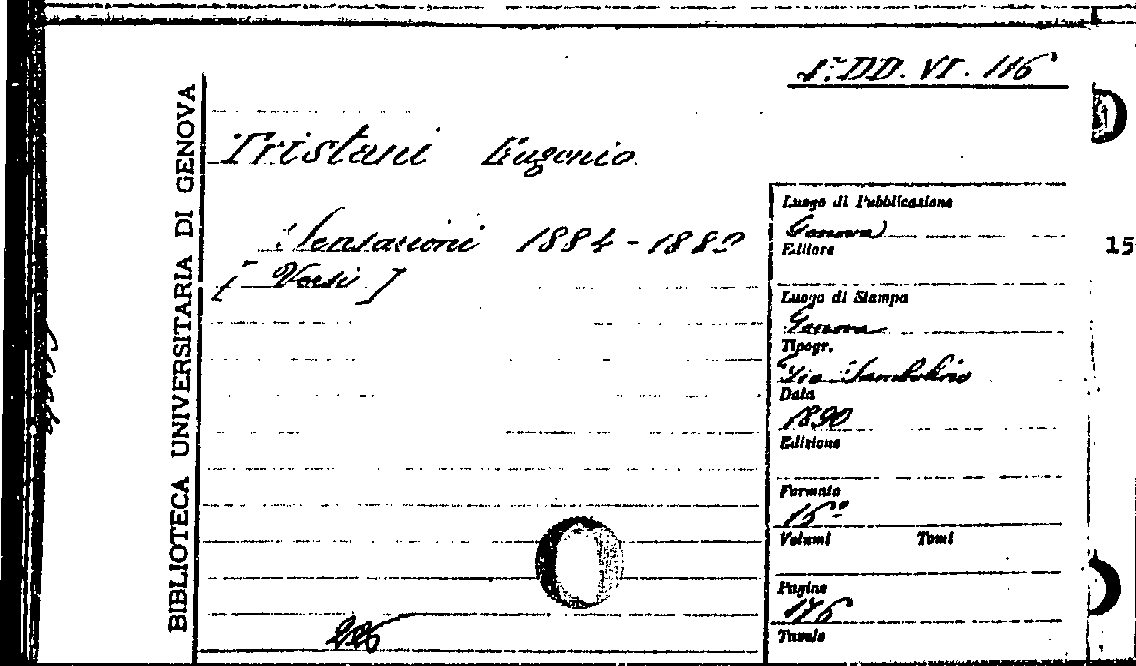 1ª.DD.VI.116
BIBLIOTECA UNIVERSITARIA DI GENOVA
Tristani Eugenio
Sensazioni 1884-1889
[Versi]
Luogo di Pubblicazione
Genova
Editore
15
Luogo di Stampa
Genova
Tipogr.
Sambolino
Data
1890
Edizione
Formato
16º
Volumi Tomi
Pagine
176
Tavole